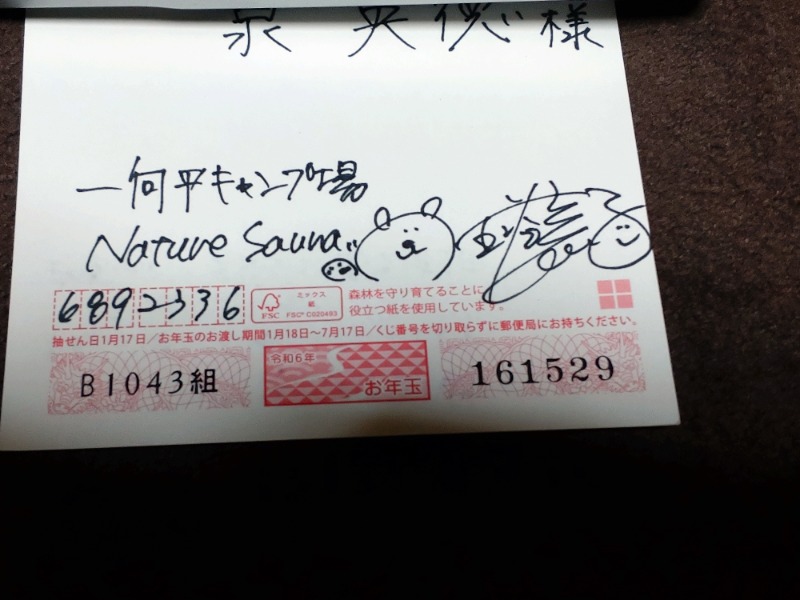 泉 央 様
一向平キャンプ場
Nature Sauna
6892336
FSC
ミックス
紙
FSC® C020493
森林を守り育てることに
役立つ紙を使用しています。
抽せん日1月17日／お年玉のお渡し期間1月18日～7月17日／くじ番号を切り取らずに郵便局にお持ちください。
B1043組
令和6年
お年玉
161529